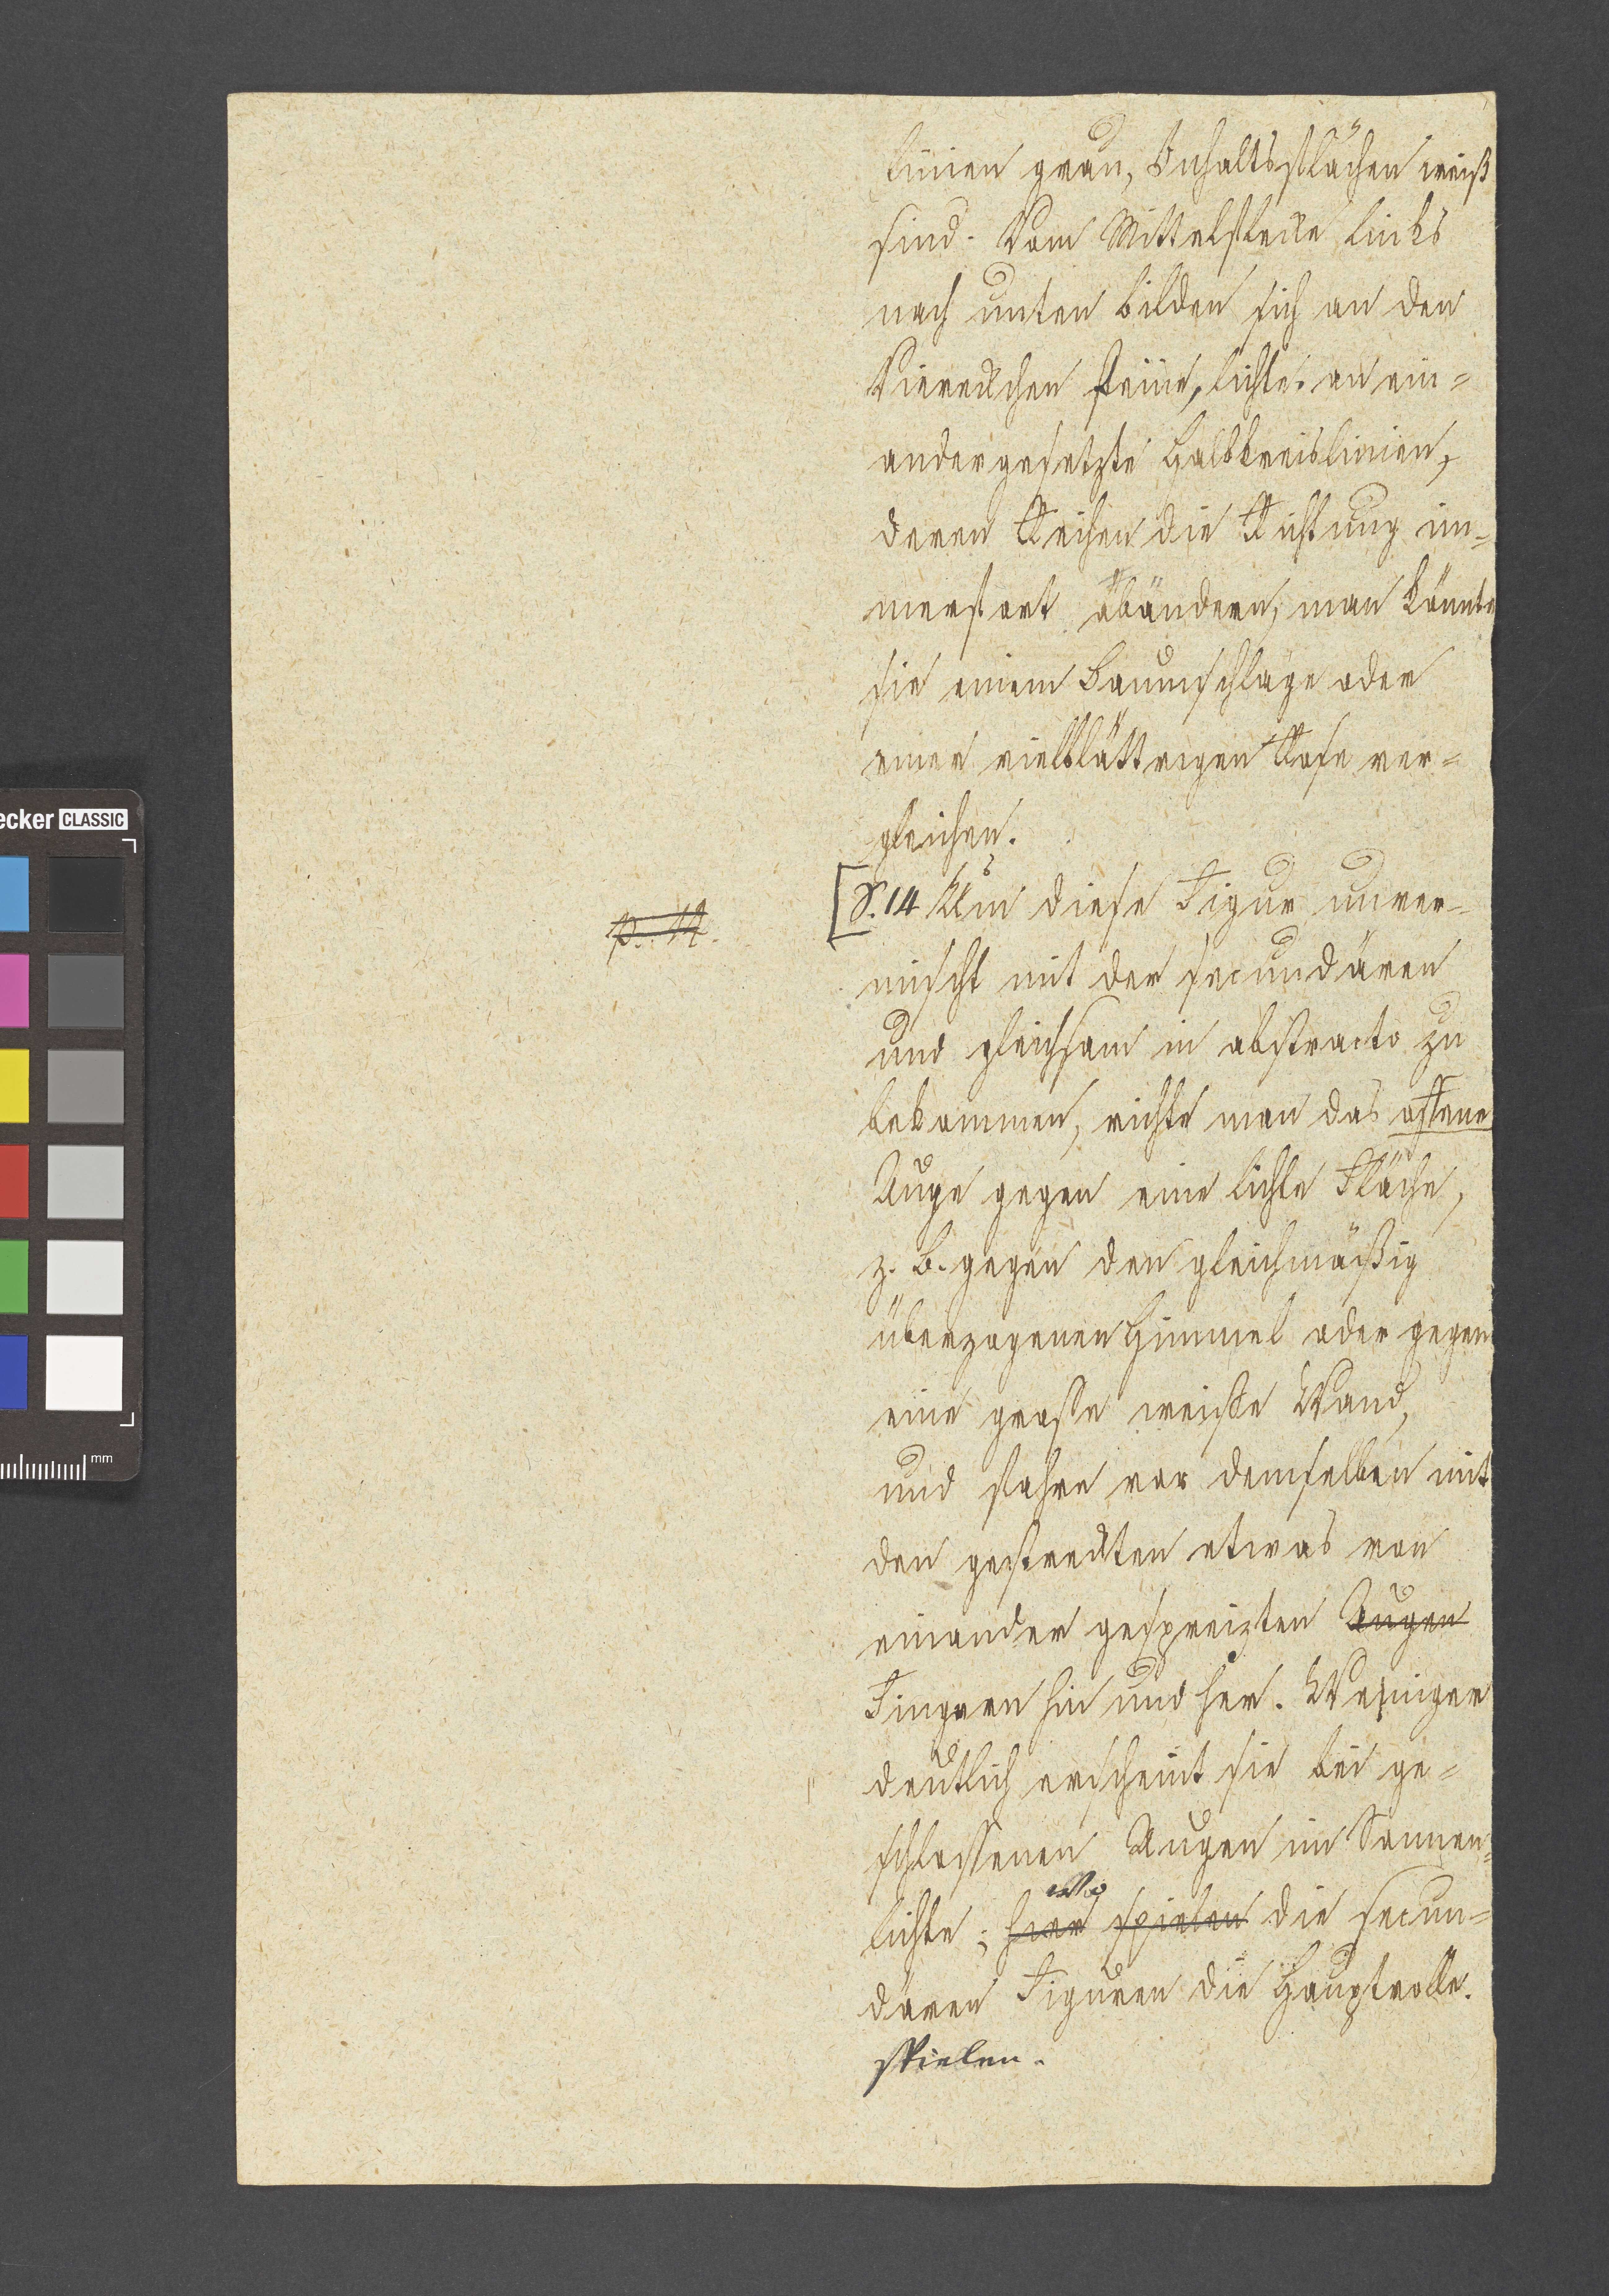 linien grau, Inhaltsflächen weiß
sind. Vom Mittelflecke links
nach unten bilden sich an den
Viereckchen feine, lichte an ein=
andergesetzte Halbkreislinien,
deren Reihen die Richtung im=
merfort abändern, man könnte
sie einem Baumschlage oder
einer vielblättrigen Rose ver=
gleichen.
p. 14.
[S. 14 Um diese Figur unver=
mischt mit der secundären
und gleichsam in abstracto zu
bekommen, richte man das offene
Auge gegen eine lichte Fläche,
z. B. gegen den gleichmäßig
überzogenen Himmel oder gegen
eine große weiße Wand,
und fahre vor demselben mit
den gestreckten etwas von
einander gespreizten Augen
Fingern hin und her. Weniger
deutlich erscheint sie bei ge=
schlossenen Augen im Sonnen=
wo
lichte; hier spielen die secun=
dären Figuren die Hauptrolle.
spielen.
ecker CLASSIC
mm